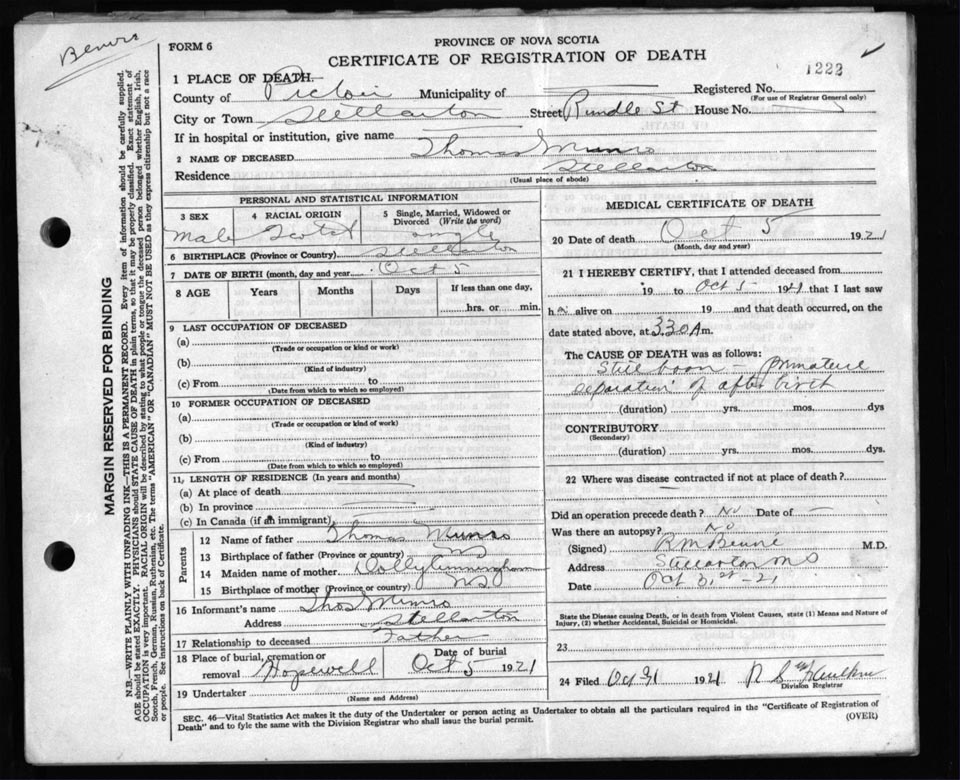 FORM 6
PROVINCE OF NOVA SCOTIA
CERTIFICATE OF REGISTRATION OF DEATH
1222
1 PLACE OF DEATH.
County of Pictou Municipality of Registered No.
(For use of Registrar General only)
City or Town Stellarton Street Rundle St House No.
If in hospital or institution, give name
2 NAME OF DECEASED Thomas Munro
Residence Stellarton
(Usual place of abode)
PERSONAL AND STATISTICAL INFORMATION
3 SEX 4 RACIAL ORIGIN 5 Single, Married, Widowed or Divorced (Write the word)
Male Scotch single
6 BIRTHPLACE (Province or Country) Stellarton
7 DATE OF BIRTH (month, day and year Oct 5
8 AGE Years Months Days If less than one day, hrs. or min.
9 LAST OCCUPATION OF DECEASED
(a)
(Trade or occupation or kind or work)
(b)
(Kind of industry)
(c) From to
(Date from which to which so employed)
10 FORMER OCCUPATION OF DECEASED
(a)
(Trade or occupation or kind of work)
(b)
(Kind of industry)
(c) From to
(Date from which to which so employed)
11, LENGTH OF RESIDENCE (In years and months)
(a) At place of death
(b) In province
(c) In Canada (if an immigrant)
Parents
12 Name of father Thomas Munro
13 Birthplace of father (Province or country) NS
14 Maiden name of mother Dolly Cunningham
15 Birthplace of mother (Province or country) NS
16 Informant's name Thos Munro
Address Stellarton
17 Relationship to deceased Father
18 Place of burial, cremation or removal Hopewell Date of burial Oct 5 1921
19 Undertaker
(Name and Address)
MEDICAL CERTIFICATE OF DEATH
20 Date of death Oct 5 1921
(Month, day and year)
21 I HEREBY CERTIFY, that I attended deceased from
19 to Oct 5 1921 that I last saw
h alive on 19 and that death occurred, on the
date stated above, at 3.30 A m.
The CAUSE OF DEATH was as follows:
Still born – Premature
separation of after birth
(duration) yrs. mos. dys
CONTRIBUTORY
(Secondary)
(duration) yrs. mos. dys
22 Where was disease contracted if not at place of death?
Did an operation precede death? No Date of –
Was there an autopsy? No
(Signed) M.D.
Address Stellarton NS
Date Oct 31st - 21
State the Disease causing Death, or in death from Violent Causes, state (1) Means and Nature of Injury, (2) whether Accidental, Suicidal or Homicidal.
23
24 Filed Oct 31 1921
Division Registrar
SEC. 46—Vital Statistics Act makes it the duty of the Undertaker or person acting as Undertaker to obtain all the particulars required in the "Certificate of Registration of
Death" and to fyle the same with the Division Registrar who shall issue the burial permit.
(OVER)
MARGIN RESERVED FOR BINDING
N.B.—WRITE PLAINLY WITH UNFADING INK—THIS IS A PERMANENT RECORD. Every item of information should be carefully supplied.
AGE should be stated EXACTLY. PHYSICIANS should STATE CAUSE OF DEATH in plain terms, so that it may be properly classified. Exact statement of
OCCUPATION is very important. RACIAL ORIGIN will be described by stating to what people or tongue the deceased person belonged whether English, Irish,
Scotch, French, German, Russian, Ruthenian, etc. The terms "AMERICAN" OR "CANADIAN" MUST NOT BE USED as they express citizenship but not a race
or people. See instructions on back of Certificate.